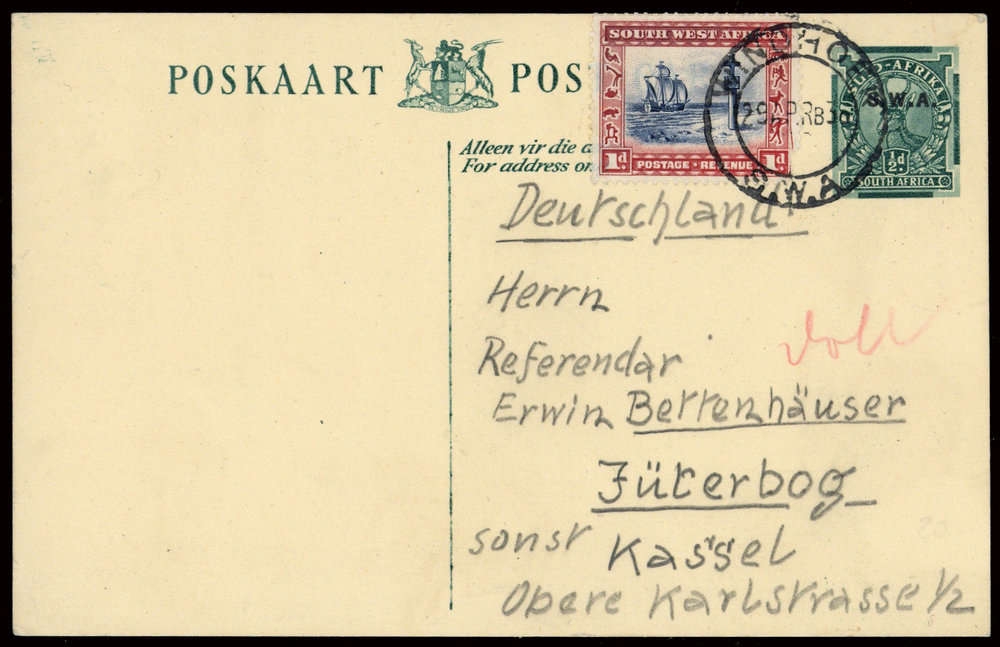 POSKAART POS
SOUTH WEST AFRICA
1d. POSTAGE·REVENUE 1d.
WINDHOEK
S.W.A.
S.W.A.
½d.
SOUTH AFRICA
Alleen vir die a
For address on
Deutschland
Herrn
Referendar
Erwin Bettenhäuser
Jüterbog
sonst Kassel
Obere Karlstrasse ½